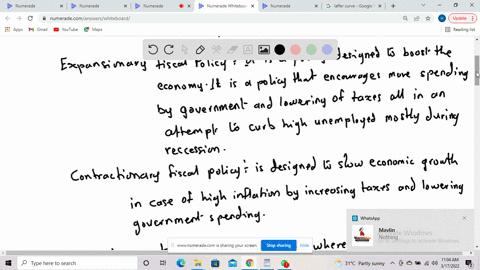 Numerade
Numerade
Numerade
Numerade Whiteboard
Numerade
laffer curve - Google
numerade.com/answers/whiteboard/
Update
Gmail
YouTube
Maps
Reading list
Expansionary fiscal policy: It is a policy designed to boost the
economy. It is a policy that encourages more spending
by government and lowering of taxes all in an
attempt to curb high unemployed mostly during
reccession.
Contractionary fiscal policy: is designed to slow economic growth
in case of high inflation by increasing taxes and lowering
government spending.
where
WhatsApp
Mavlin
Nothing
www.numerade.com is sharing your screen.
Stop sharing
Hide
Type here to search
31°C Partly sunny
11:04 AM
3/17/2022